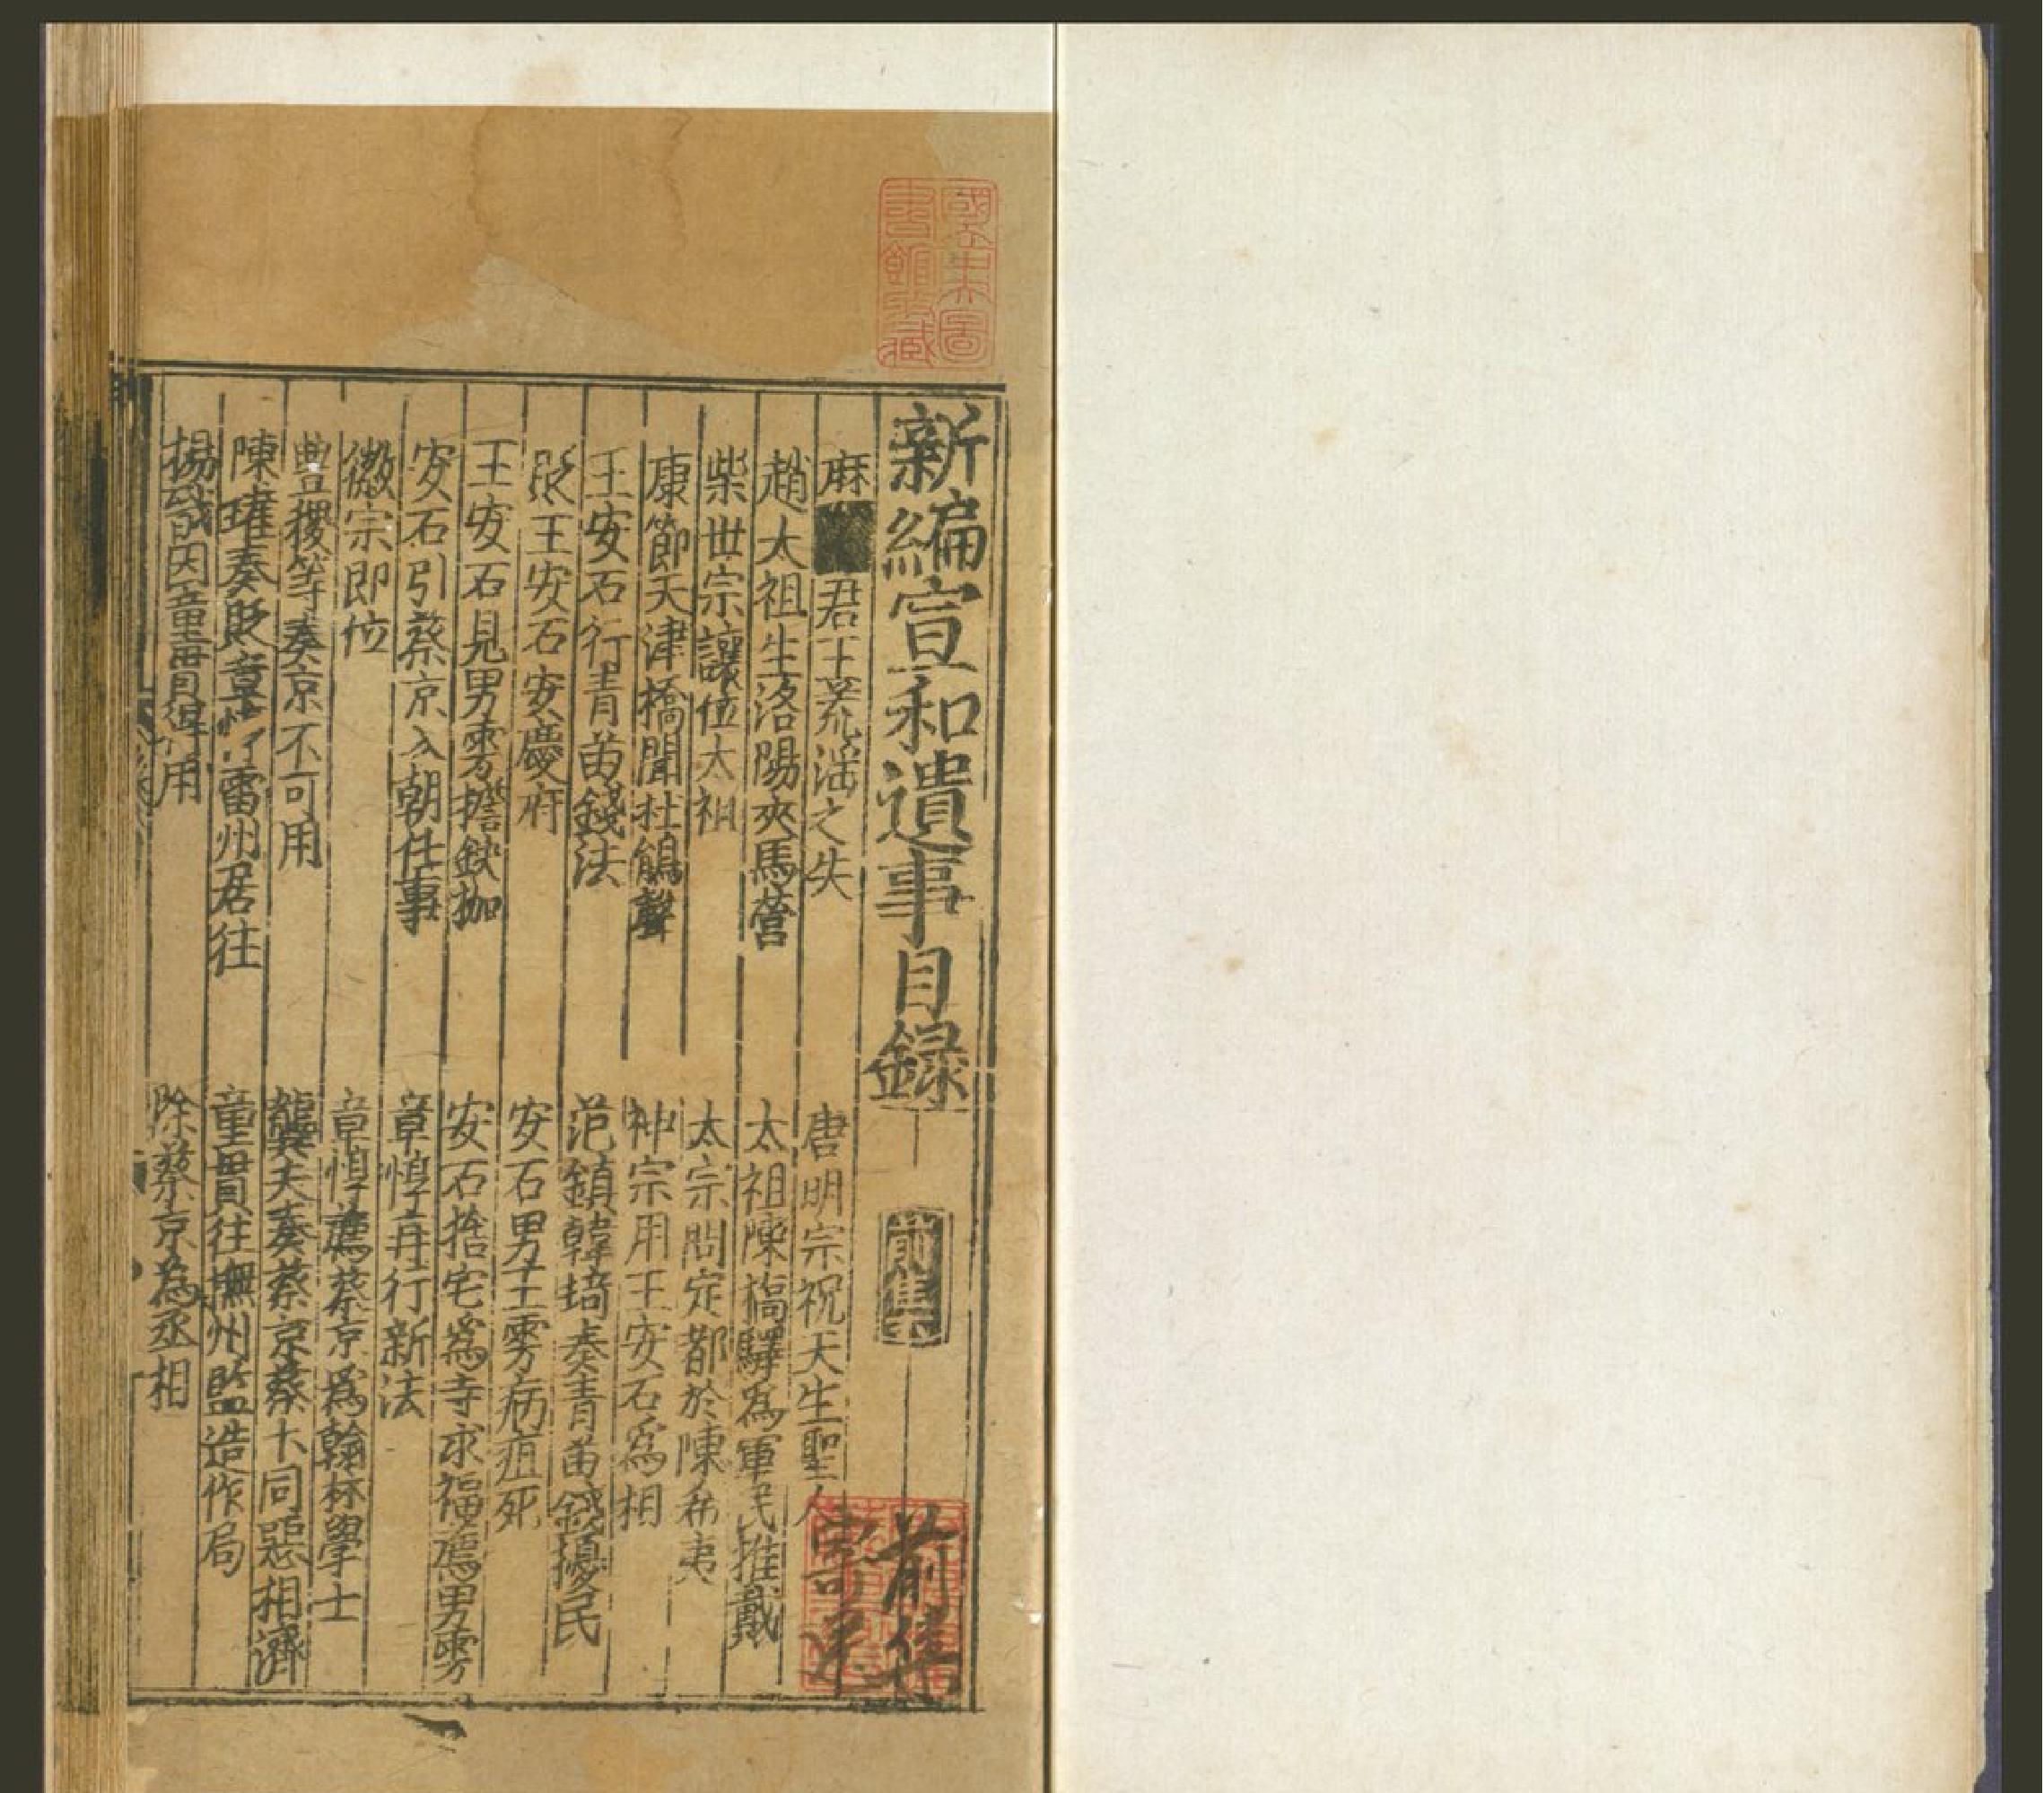 新編宣和遺事目錄
前集
麻 君王荒淫之失
唐明宗祝天生聖人
趙太祖生洛陽夾馬營
太祖陳橋驛為軍民推戴
柴世宗讓位太祖
太宗問定都於陳希夷
康節天津橋聞杜鵑聲
神宗用王安石為相
王安石行青苗錢法
范鎮韓琦奏青苗錢擾民
貶王安石安慶府
安石男王雱病疽死
王安石見男雱擔鉄枷
安石捨宅為寺求福薦男雱
安石引蔡京入朝任事
章惇再行新法
徽宗即位
章惇薦蔡京為翰林學士
豊稷等奏京不可用
龔夬奏蔡京蔡卞同惡相濟
陳瓘奏貶章惇雷州居住
童貫往撫州監造作局
蔡京因童貫得用
除蔡京為丞相
國立中央圖
書館收藏
前集